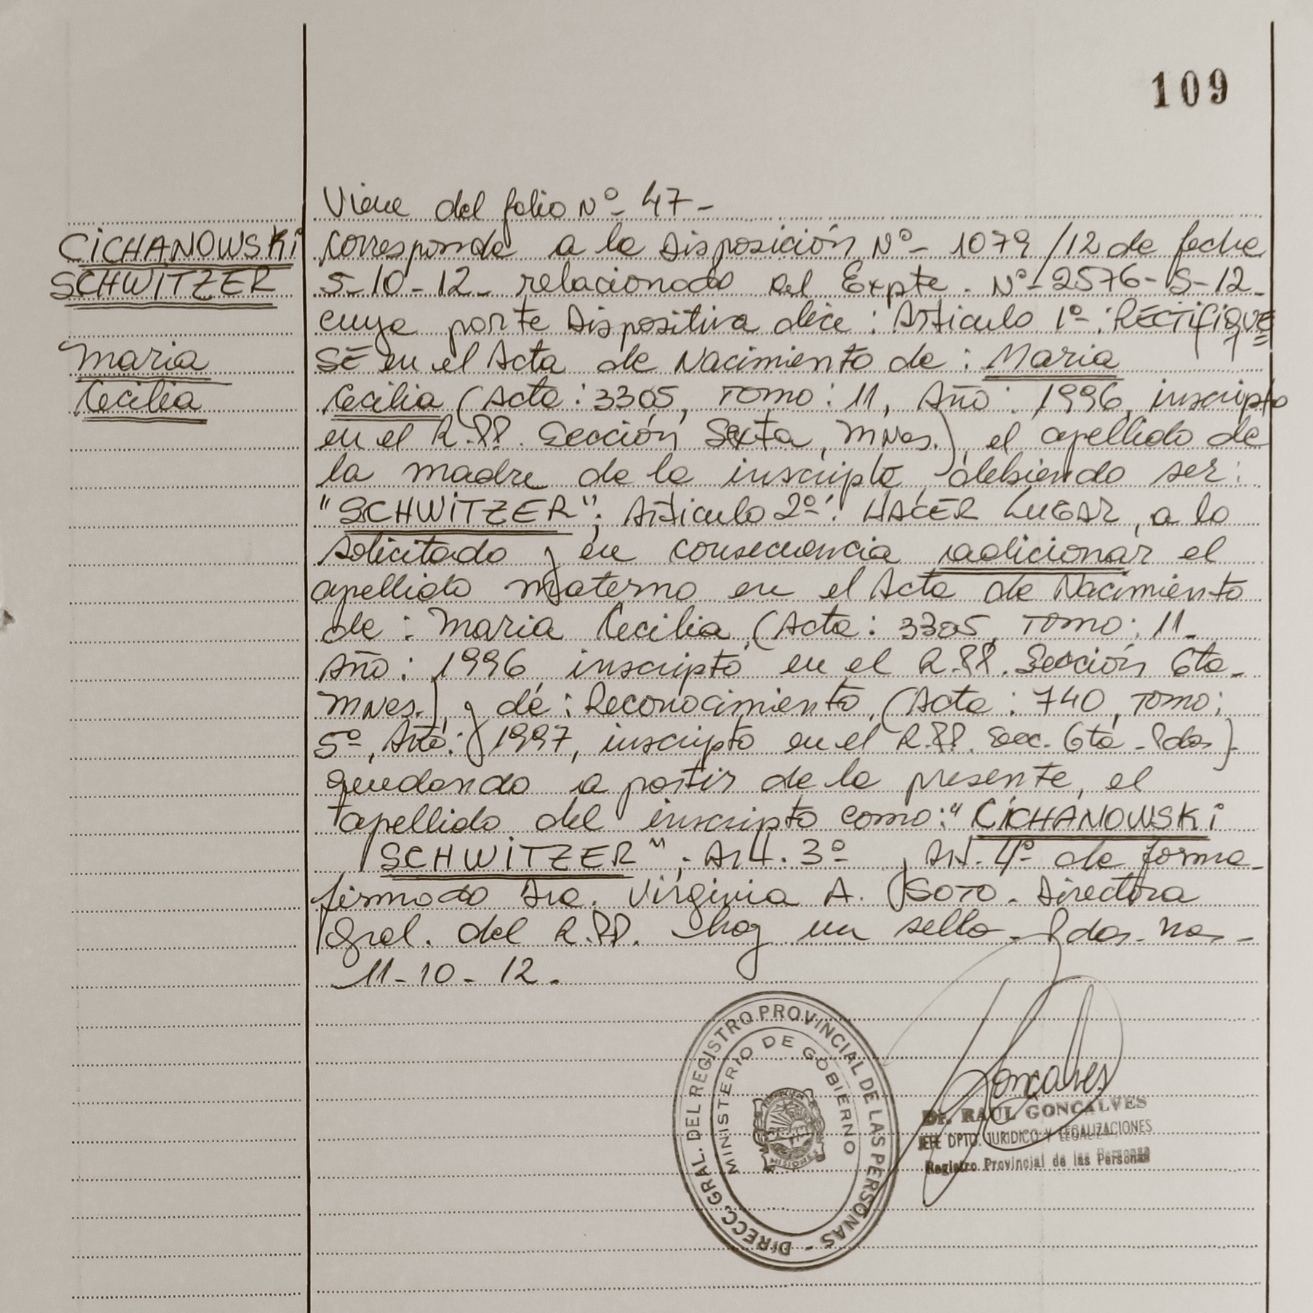 109
Viene del folio Nº- 47-
CICHANOWSKI
SCHWITZER
Maria
Cecilia
corresponde a la Disposición Nº- 1079/12 de fecha
5-10-12- relacionado al Expte. Nº-2576-S-12-
cuya parte Dispositiva dice: Articulo 1º: RECTIFIQUE
SE en el Acta de Nacimiento de: Maria
Cecilia (Acta: 3305, Tomo: 11, Año: 1996, inscripto
en el R.PP. Sección Sexta, Mnes.), el apellido de
la madre de la inscripta, debiendo ser:
"SCHWITZER"; Articulo 2º: HACER LUGAR, a lo
solicitado y en consecuencia adicionar el
apellido materno en el Acta de Nacimiento
de: Maria Cecilia, (Acta: 3305, Tomo: 11-
Año: 1996 inscripto en el R.PP. Sección 6ta-
Mnes.), y de: Reconocimiento, (Acta: 740, Tomo:
5º, Año: 1997, inscripto en el R.PP. Secc. 6ta-Pdas).
quedando a partir de la presente, el
apellido del inscripto como: "CICHANOWSKI
SCHWITZER". Art. 3º , Art. 4º de forma-
firmado Dra. Virginia A. SOTO. Directora
Gral. del R.PP. hay un sello- Pdas. Mnes-
11-10-12.
DIRECC. GRAL. DEL REGISTRO PROVINCIAL DE LAS PERSONAS -
MINISTERIO DE GOBIERNO
MISIONES
Goncalves
Dr. RAUL GONCALVES
JEFE DPTO. JURIDICO Y LEGALIZACIONES
Registro Provincial de las Personas